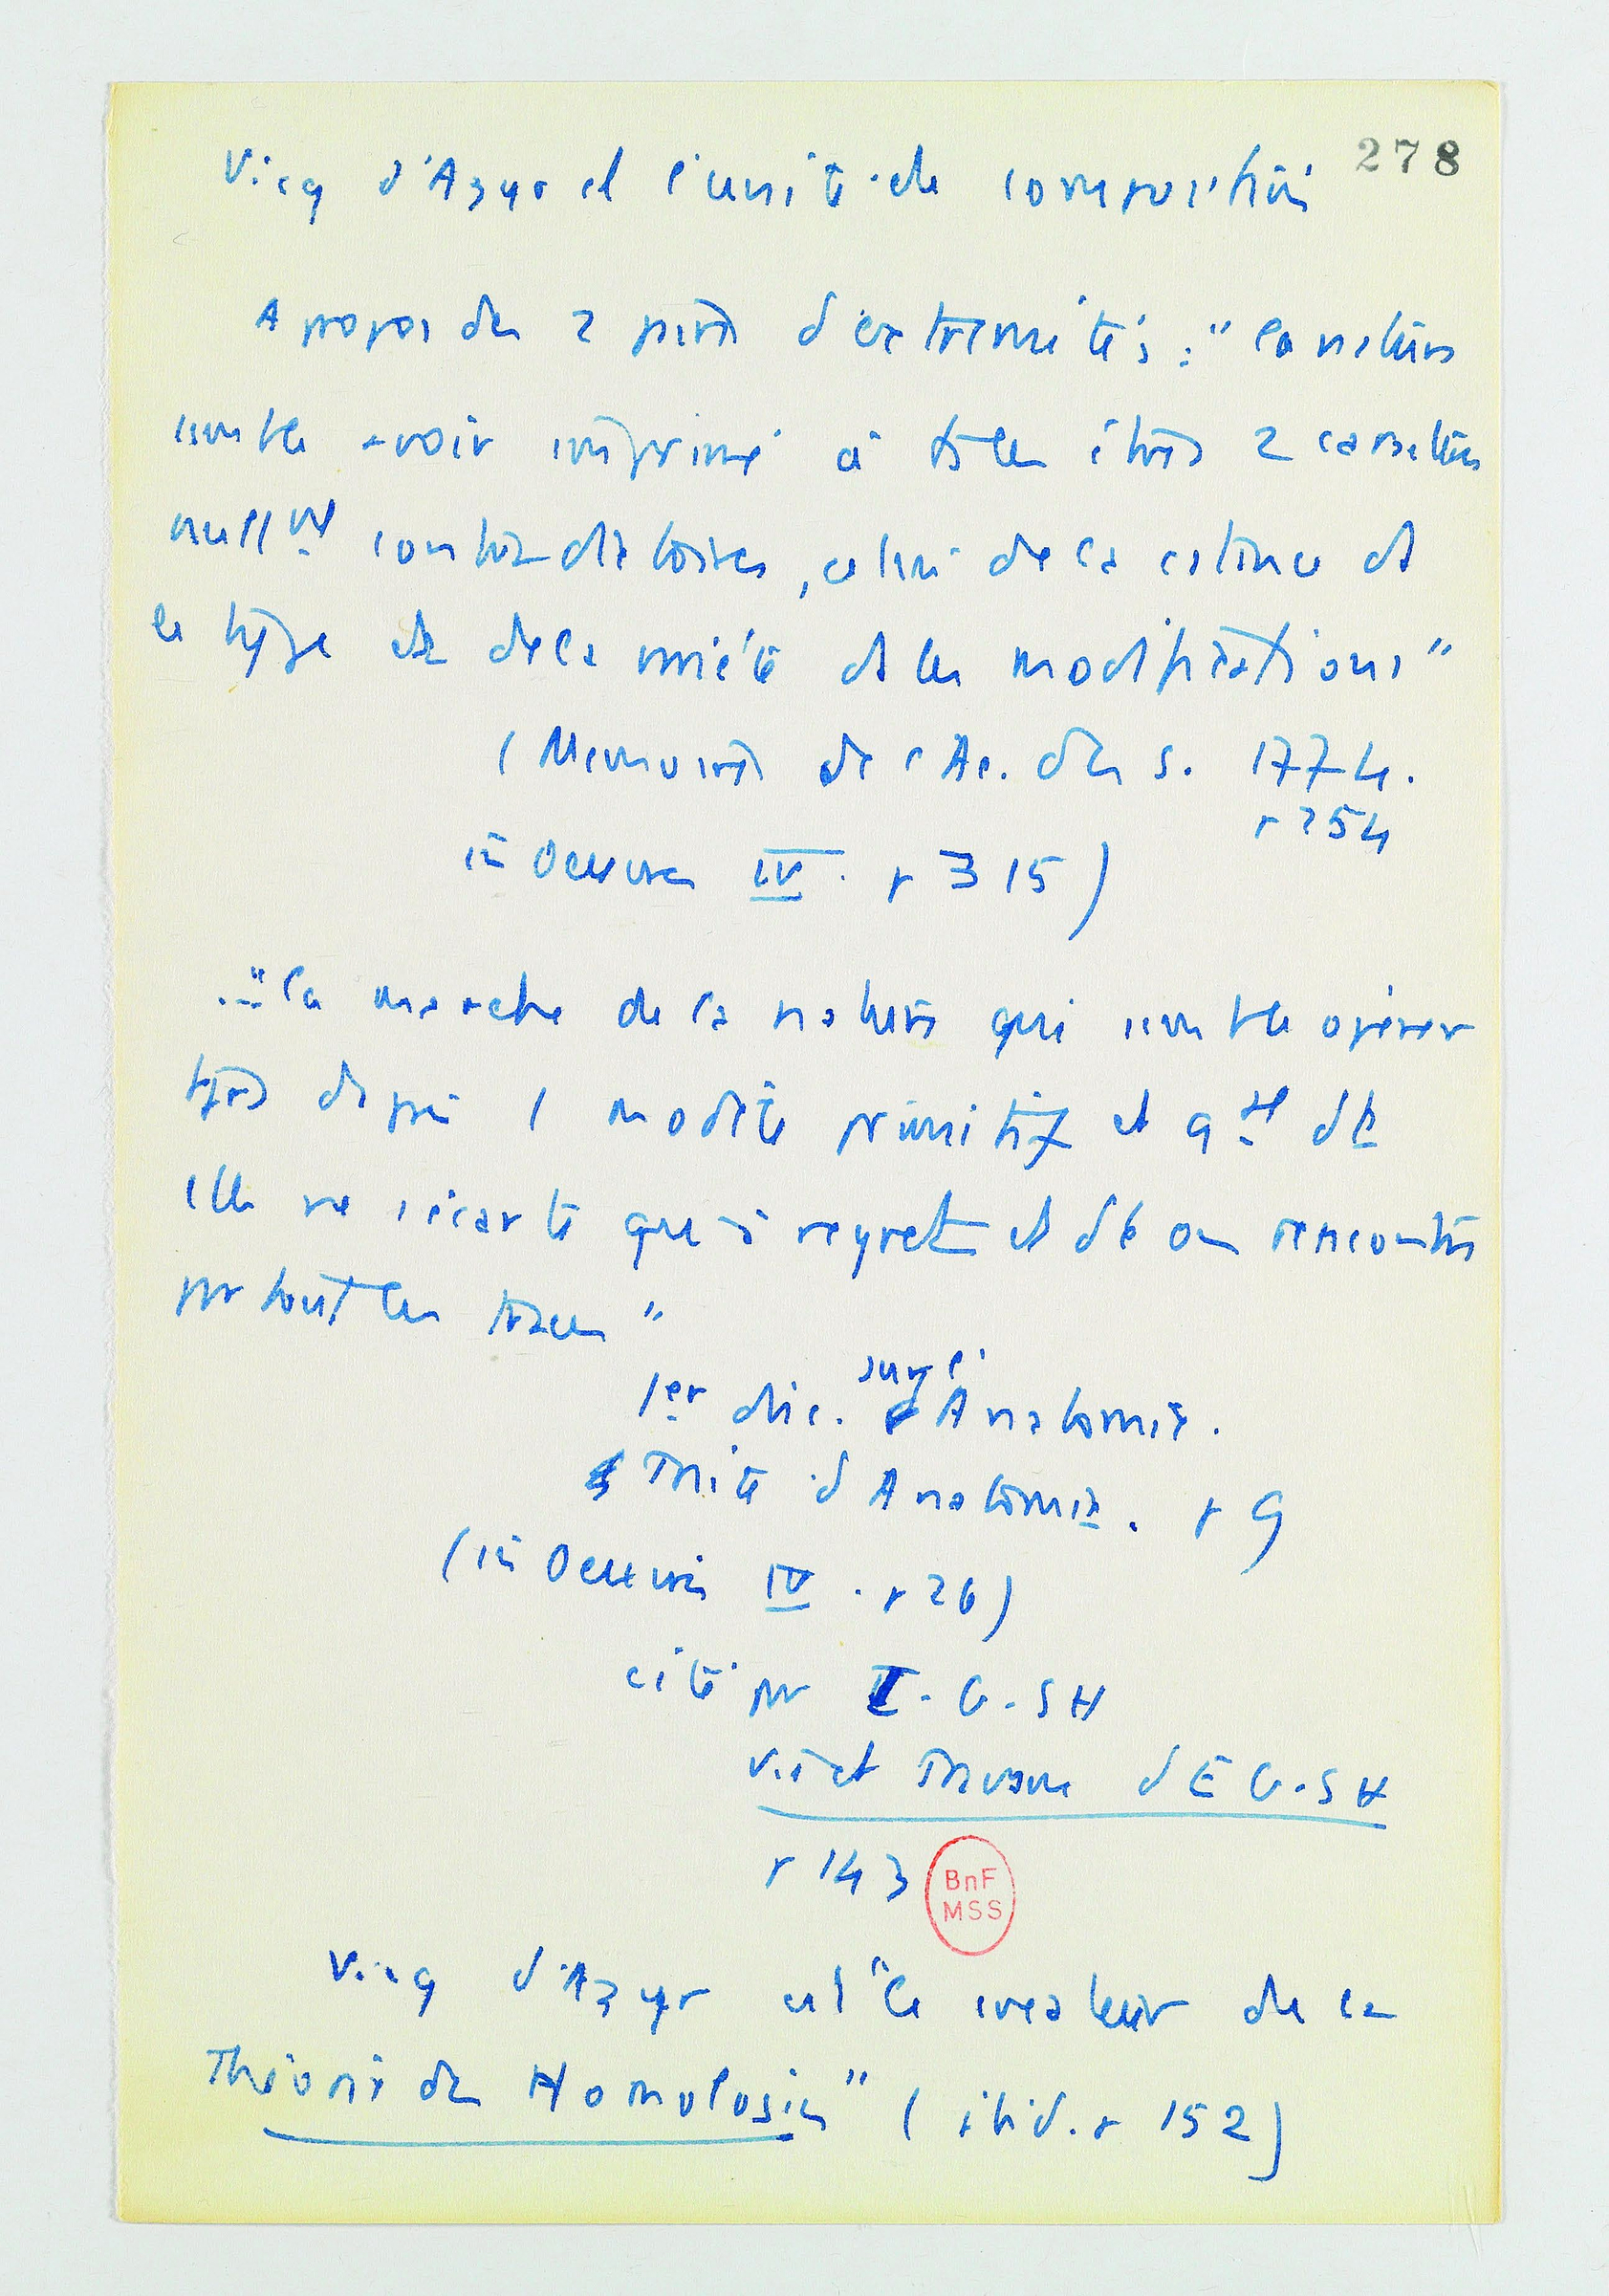 278
Vicq d'Azyr et l'unité de composition
A propos des 2 paires d'extrémités : "la nature
semble avoir imprimé à ts les êtres 2 caractères
nullmt contradictoires, celui de la constance ds
le type et de la variété ds les modifications"
(Memoires de l'Ac. des S. 1774.
p 254
in Oeuvres IV. p 315)
..."la marche de la nature qui semble opérer
tjrs d'après 1 modèle primitif et gal dt
elle ne s'écarte qu'à regret et dt on rencontre
partout les traces"
1er disc. sur l'Anatomie.
Traité d'Anatomie. p 9
(in Oeuvres IV. p 26)
cité par I. G. SH
Vie et Travaux d'E G. SH
p 143
BnF
MSS
Vicq d'Azyr est "le createur de la
Théorie des Homologies" (ibid. p 152)